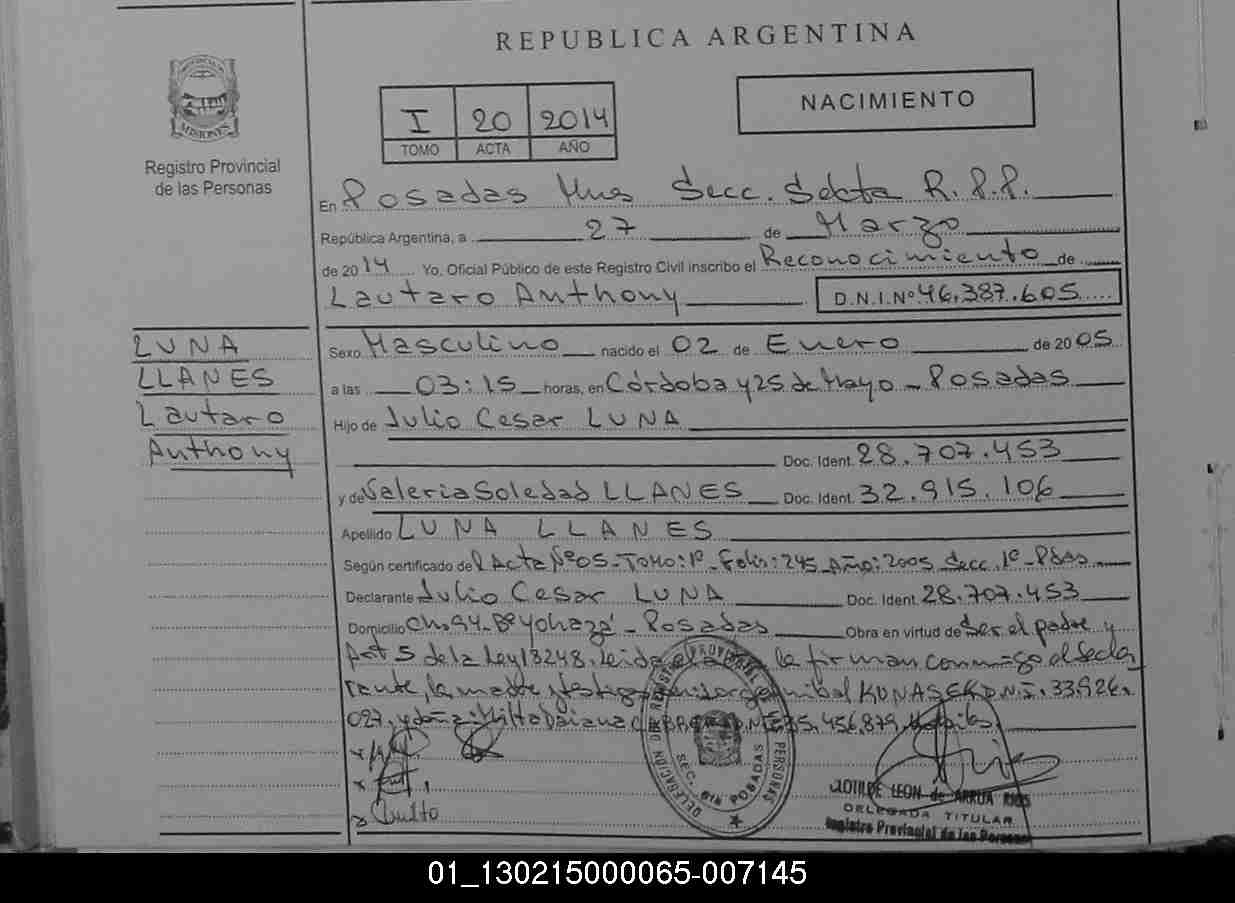 REPUBLICA ARGENTINA
PROVINCIA DE
MISIONES
Registro Provincial
de las Personas
I 20 2014
TOMO ACTA AÑO
NACIMIENTO
En Posadas Mnes Secc. Sexta R.P.P.
República Argentina, a 27 de Marzo
de 2014 Yo, Oficial Público de este Registro Civil inscribo el Reconocimiento de
Lautaro Anthony D.N.I.Nº 46.387.605
LUNA
LLANES
Lautaro
Anthony
Sexo Masculino nacido el 02 de Enero de 2005
a las 03:15 horas, en Córdoba y 25 de Mayo - Posadas
Hijo de Julio Cesar LUNA
Doc. Ident. 28.707.453
y de Valeria Soledad LLANES Doc. Ident. 32.915.106
Apellido LUNA LLANES
Según certificado de l Acta Nº05-Tomo:1º-Folio:245 Año:2005 Secc.1º-Pdas
Declarante Julio Cesar LUNA Doc. Ident. 28.707.453
Domicilio Ch.94-Bº Yohasá - Posadas Obra en virtud de Ser el padre y
Art 5 de la Ley 13248. Leida el la firman conmigo el decla
rante, la madre y testigo KUNASEK D.N.I. 33.926.
027. y doña 456.879.
Culto
DELEGACION DEL REGISTRO PROVINCIAL DE LAS PERSONAS
SEC. 6ta POSADAS
CLOTILDE LEON de ARRUA RIOS
DELEGADA TITULAR
Registro Provincial de las Personas
01_130215000065-007145